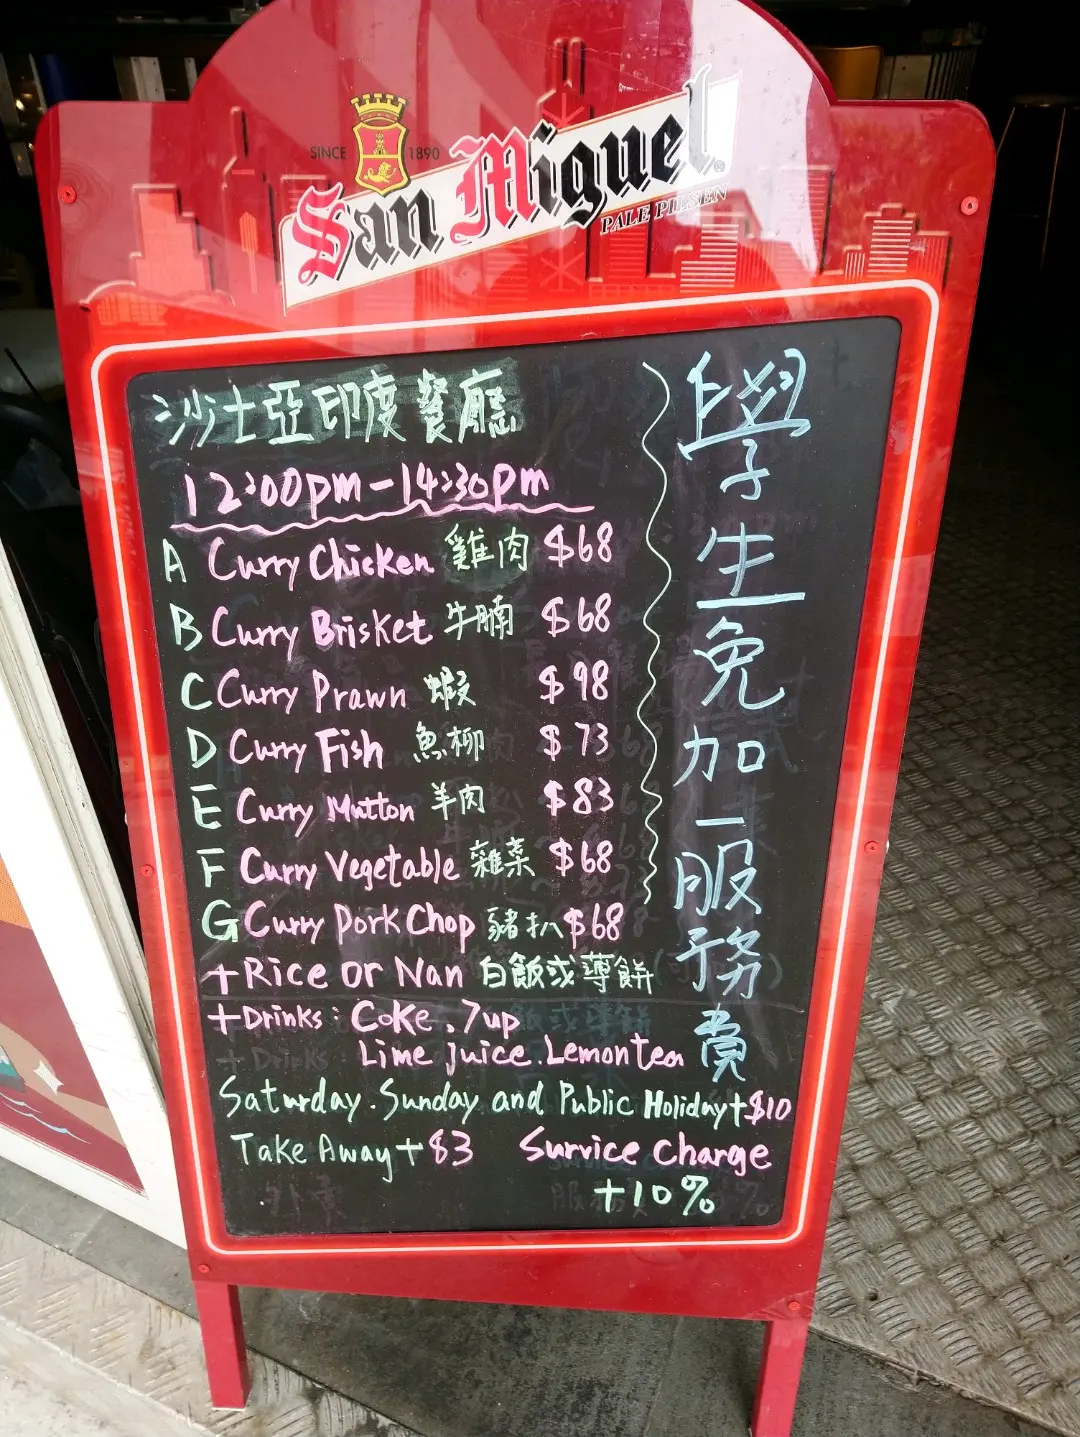 SINCE 1890
San Miguel
PALE PILSEN
沙士亞印度餐廳
12:00pm-14:30pm
A Curry Chicken 雞肉 $68
B Curry Brisket 牛腩 $68
C Curry Prawn 蝦 $98
D Curry Fish 魚柳 $73
E Curry Mutton 羊肉 $83
F Curry Vegetable 雜菜 $68
G Curry Pork Chop 豬扒 $68
+Rice or Nan 白飯或薄餅
+Drinks: Coke.7up
Lime juice.Lemontea
Saturday.Sunday and Public Holiday+$10
Take Away+$3 Survice Charge
+10%
學生免加一服務賞